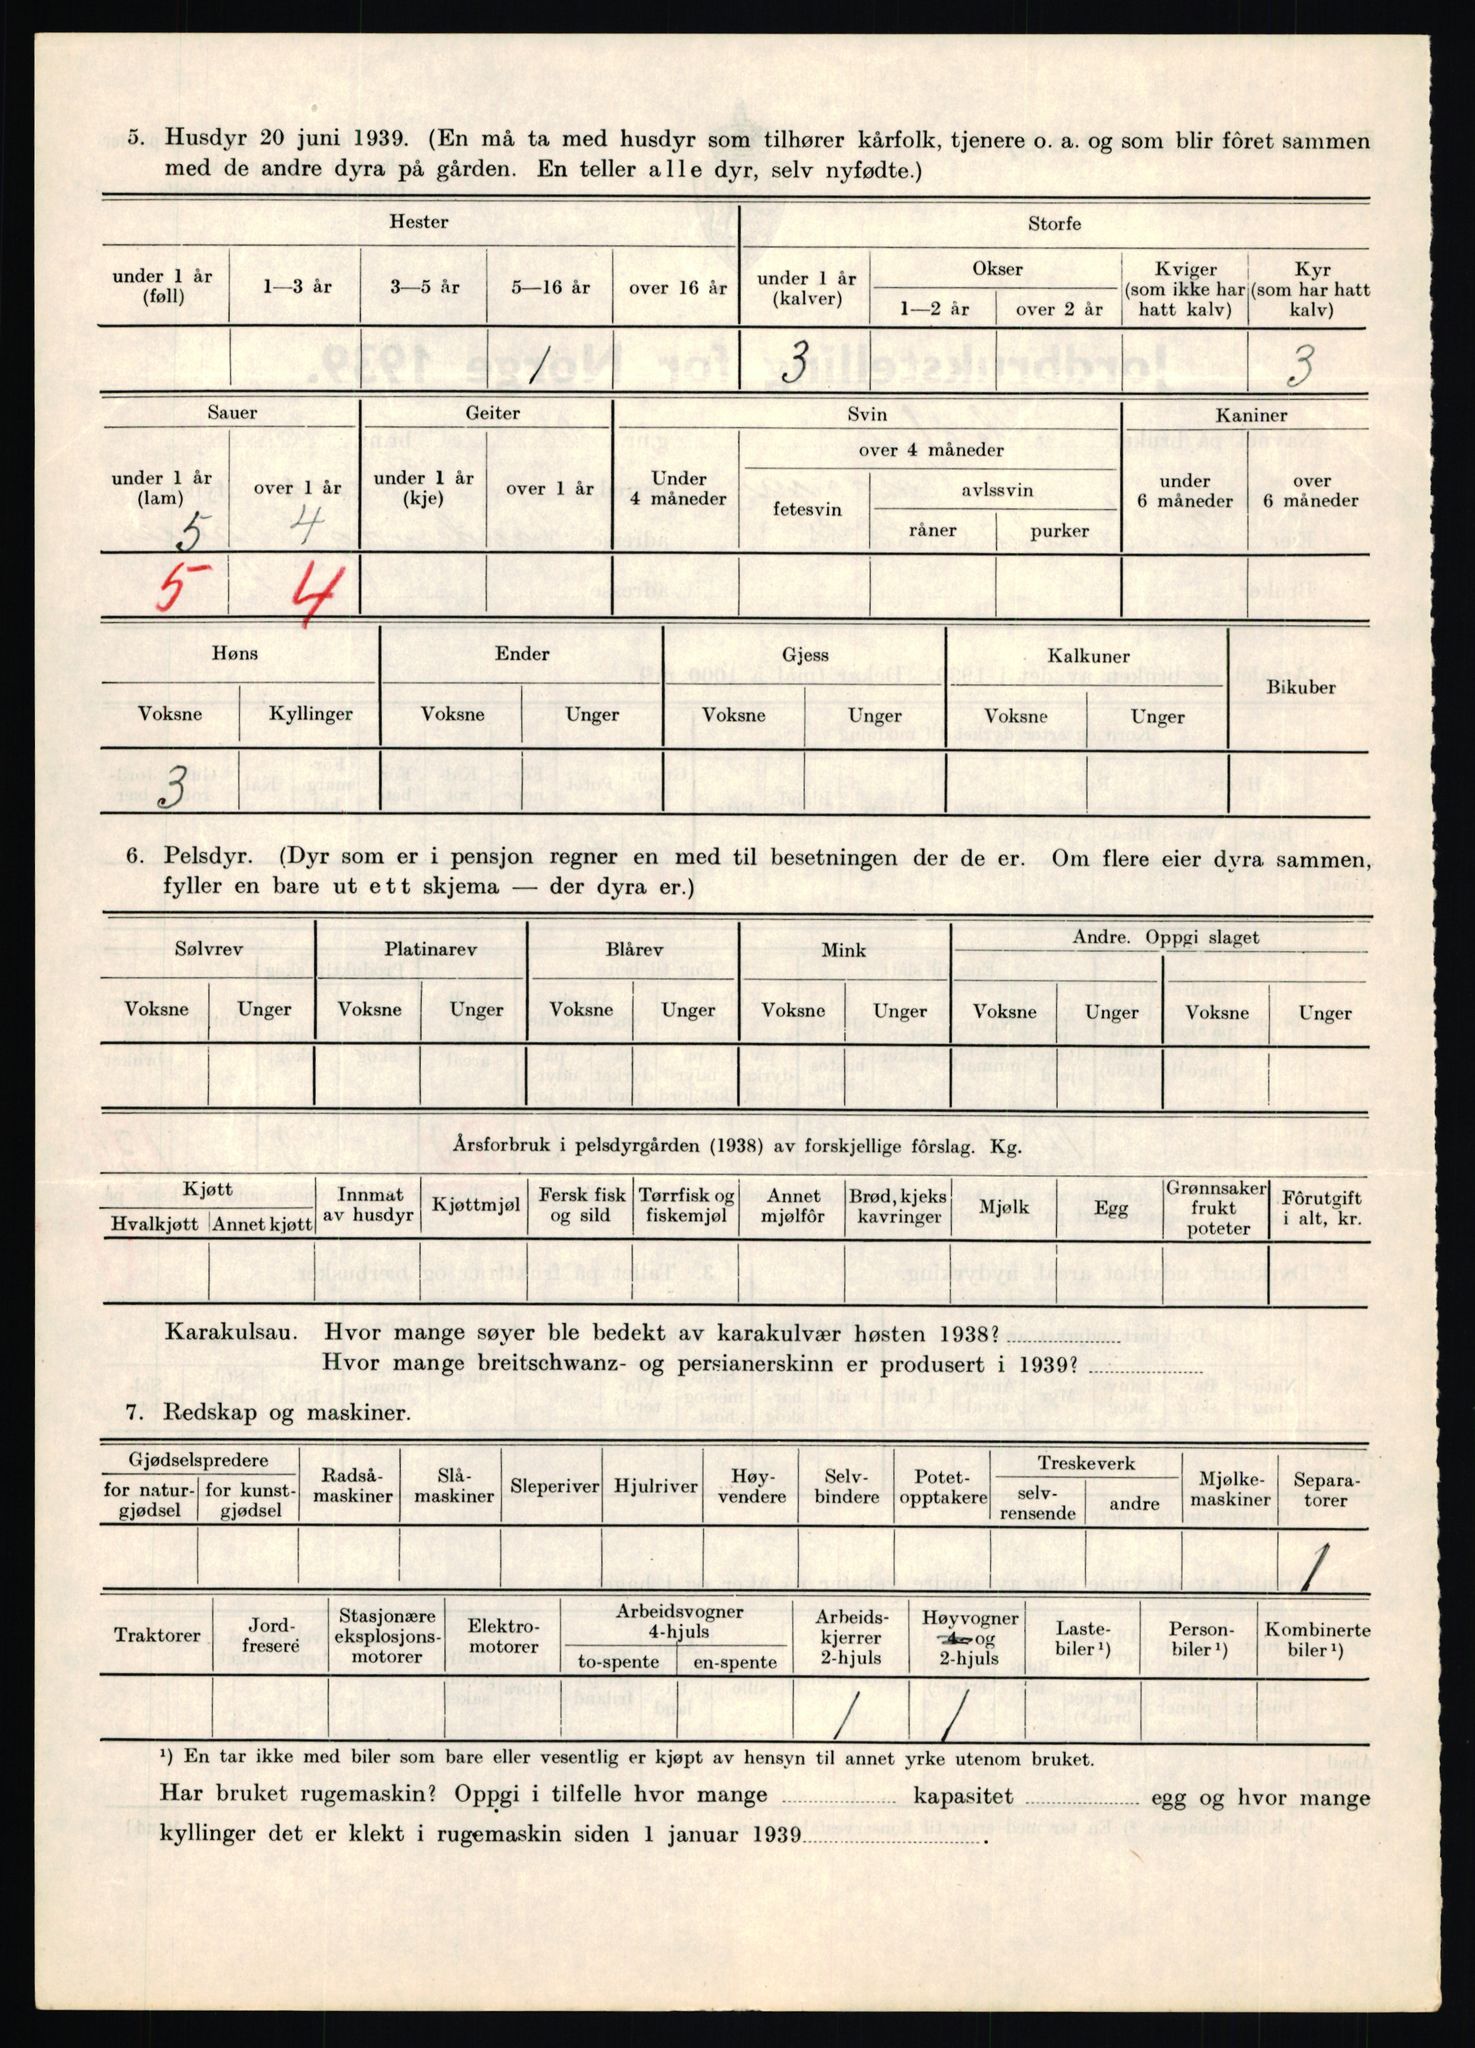 5. Husdyr 20 juni 1939. (En må ta med husdyr som tilhører kårfolk, tjenere o. a. og som blir fôret sammen
med de andre dyra på gården. En teller alle dyr, selv nyfødte.)
Hester Storfe
under 1 år (føll) 1—3 år 3—5 år 5—16 år over 16 år under 1 år (kalver) Okser 1—2 år over 2 år Kviger (som ikke har hatt kalv) Kyr (som har hatt kalv)
1 3 3
Sauer Geiter Svin Kaniner
under 1 år (lam) over 1 år under 1 år (kje) over 1 år Under 4 måneder over 4 måneder fetesvin avlssvin råner purker under 6 måneder over 6 måneder
5 4
5 4
Høns Ender Gjess Kalkuner Bikuber
Voksne Kyllinger Voksne Unger Voksne Unger Voksne Unger
3
6. Pelsdyr. (Dyr som er i pensjon regner en med til besetningen der de er. Om flere eier dyra sammen,
fyller en bare ut ett skjema — der dyra er.)
Sølvrev Platinarev Blårev Mink Andre. Oppgi slaget
Voksne Unger Voksne Unger Voksne Unger Voksne Unger Voksne Unger Voksne Unger
Årsforbruk i pelsdyrgården (1938) av forskjellige fôrslag. Kg.
Kjøtt Hvalkjøtt Annet kjøtt Innmat av husdyr Kjøttmjøl Fersk fisk og sild Tørrfisk og fiskemjøl Annet mjølfôr Brød, kjeks kavringer Mjølk Egg Grønnsaker frukt poteter Fôrutgift i alt, kr.
Karakulsau. Hvor mange søyer ble bedekt av karakulvær høsten 1938?
Hvor mange breitschwanz- og persianerskinn er produsert i 1939?
7. Redskap og maskiner.
Gjødselspredere for natur-gjødsel for kunst-gjødsel Radså-maskiner Slå-maskiner Sleperiver Hjulriver Høy-vendere Selv-bindere Potet-opptakere Treskeverk selv-rensende andre Mjølke-maskiner Separa-torer
1
Traktorer Jord-freseré Stasjonære eksplosjons-motorer Elektro-motorer Arbeidsvogner 4-hjuls to-spente en-spente Arbeids-kjerrer 2-hjuls Høyvogner 4- og 2-hjuls Laste-biler ¹) Person-biler ¹) Kombinerte biler ¹)
1 1
¹) En tar ikke med biler som bare eller vesentlig er kjøpt av hensyn til annet yrke utenom bruket.
Har bruket rugemaskin? Oppgi i tilfelle hvor mange kapasitet egg og hvor mange
kyllinger det er klekt i rugemaskin siden 1 januar 1939 .